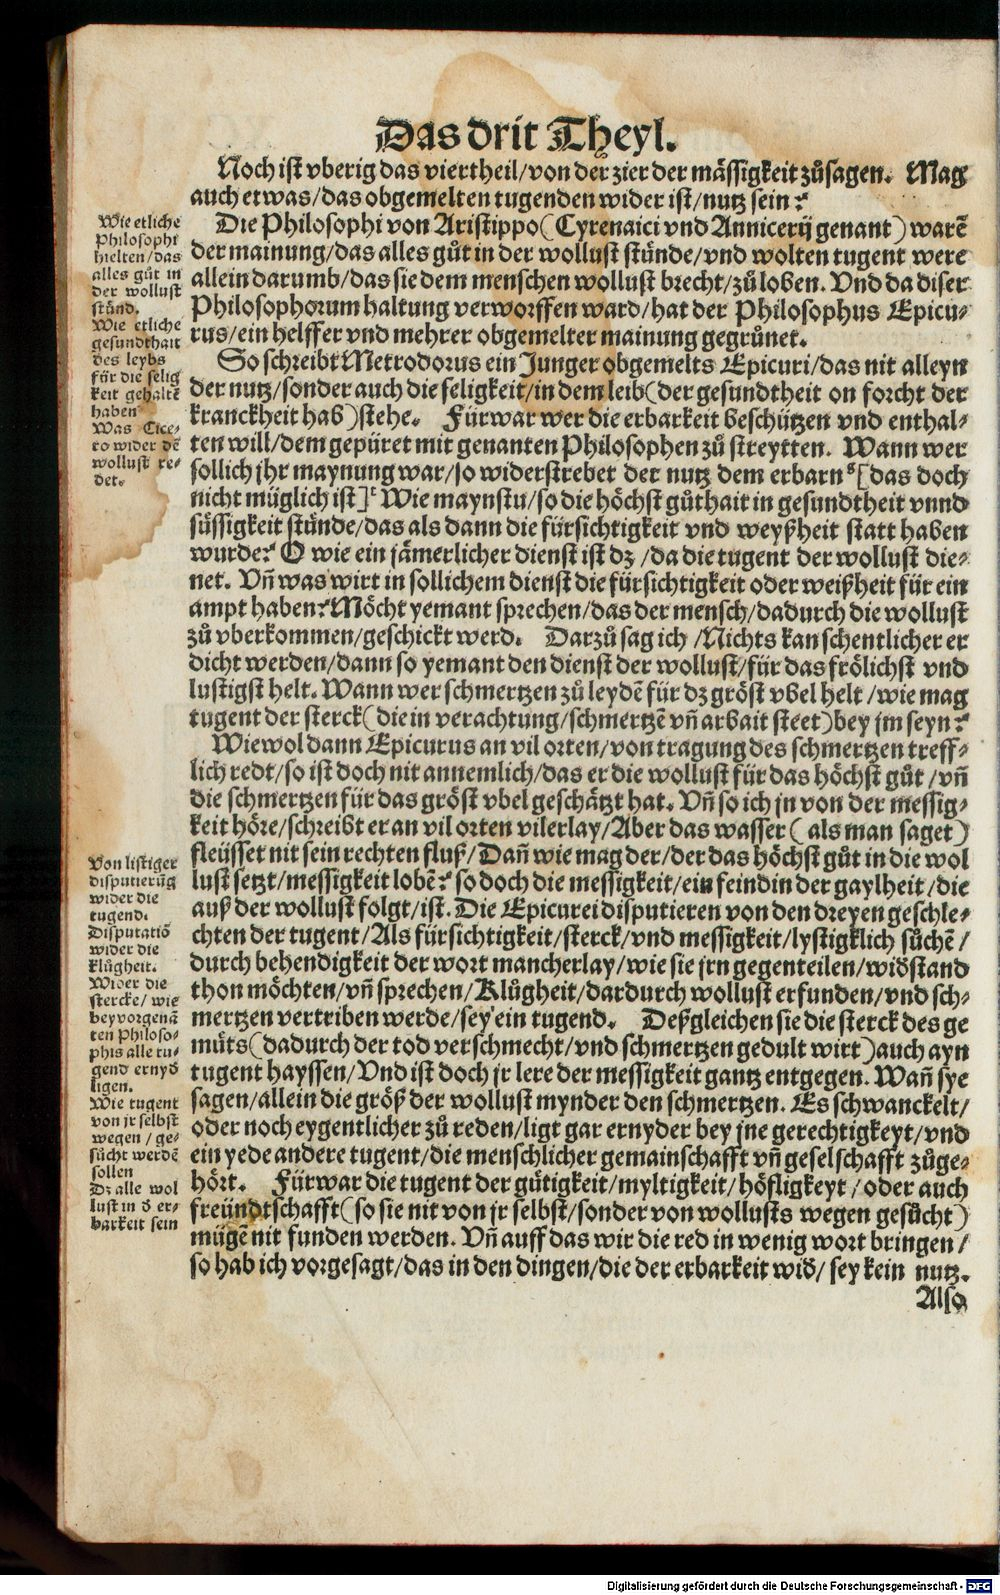 Das drit Theyl.
Noch ist vberig das viertheil/von der zier der mässigkeit zůsagen. Mag
auch etwas/das obgemelten tugenden wider ist/nutz sein?
Die Philosophi von Aristippo(Cyrenaici vnd Annicerij genant) warẽ
der mainung/das alles gůt in der wollust stünde/vnd wolten tugent were
allein darumb/das sie dem menschen wollust brecht/zů loben. Vnd da diser
Philosophorum haltung verworffen ward/hat der Philosophus Epicu-
rus/ein helffer vnd mehrer obgemelter mainung gegrůnet.
So schreibt Metrodorus ein Junger obgemelts Epicuri/das nit alleyn
der nutz/sonder auch die seligkeit/in dem leib(der gesundtheit on forcht der
kranckheit hab)stehe. Fürwar wer die erbarkeit beschützen vnd enthal-
ten will/dem gepüret mit genanten Philosophen zů streytten. Wann wer
sollich jhr maynung war/so widerstrebet der nutz dem erbarn[das doch
nicht müglich ist] Wie maynstu/so die höchst gůthait in gesundtheit vnnd
süssigkeit stünde/das als dann die fürsichtigkeit vnd weyßheit statt haben
wurde? O wie ein jämerlicher dienst ist dz/da die tugent der wollust die-
net. Vñ was wirt in sollichem dienst die fürsichtigkeit oder weißheit für ein
ampt haben? Möcht yemant sprechen/das der mensch/dadurch die wollust
zů vberkommen/geschickt werd. Darzů sag ich/Nichts kan schentlicher er
dicht werden/dann so yemant den dienst der wollust/für das frölichst vnd
lustigst helt. Wann wer schmertzen zů leydẽ für dz gröst vbel helt/wie mag
tugent der sterck(die in verachtung/schmertzẽ vñ arbait steet)bey jm seyn?
Wiewol dann Epicurus an vil orten/von tragung des schmertzen treff-
lich redt/so ist doch nit annemlich/das er die wollust für das höchst gůt/vñ
die schmertzen für das gröst vbel geschätzt hat. Vñ so ich jn von der messig-
keit höre/schreibt er an vil orten vilerlay/Aber das wasser(als man saget)
fleüsset nit sein rechten fluß/Dañ wie mag der/der das höchst gůt in die wol
lust setzt/messigkeit lobẽ? so doch die messigkeit/ein feindin der gaylheit/die
auß der wollust folgt/ist. Die Epicurei disputieren von den dreyen geschle-
chten der tugent/Als fürsichtigkeit/sterck/vnd messigkeit/lystigklich sůchẽ/
durch behendigkeit der wort mancherlay/wie sie jrn gegenteilen/widstand
thon möchten/vñ sprechen/Klůgheit/dardurch wollust erfunden/vnd sch-
mertzen vertriben werde/sey ein tugend. Deßgleichen sie die sterck des ge
můts(dadurch der tod verschmecht/vnd schmertzen gedult wirt)auch ayn
tugent hayssen/Vnd ist doch jr lere der messigkeit gantz entgegen. Wañ sye
sagen/allein die größ der wollust mynder den schmertzen. Es schwanckelt/
oder noch eygentlicher zů reden/ligt gar ernyder bey jne gerechtigkeyt/vnd
ein yede andere tugent/die menschlicher gemainschafft vñ geselschafft zůge-
hört. Fürwar die tugent der gütigkeit/myltigkeit/höfligkeyt/oder auch
freündtschafft(so sie nit von jr selbst/sonder von wollusts wegen gesůcht)
mügẽ nit funden werden. Vñ auff das wir die red in wenig wort bringen/
so hab ich vorgesagt/das in den dingen/die der erbarkeit wid/sey kein nutz.
Also
Wie etliche
Philosophi
hielten/das
alles gůt in
der wollust
stünd.
Wie etliche
gesundthait
des leybs
für die selig
keit gehaltẽ
haben
Was Cice-
ro wider dẽ
wollust re-
det.
Von listiger
disputierũg
wider die
tugend.
Disputatiõ
wider die
klůgheit.
Wider die
stercke/wie
bey vorgenã
ten Philoso-
phis alle tu-
gend ernyd
ligen.
Wie tugent
von jr selbst
wegen/ge-
sůcht werdẽ
sollen
Dz alle wol
lust in d er-
barkeit sein
Digitalisierung gefördert durch die Deutsche Forschungsgemeinschaft - DFG